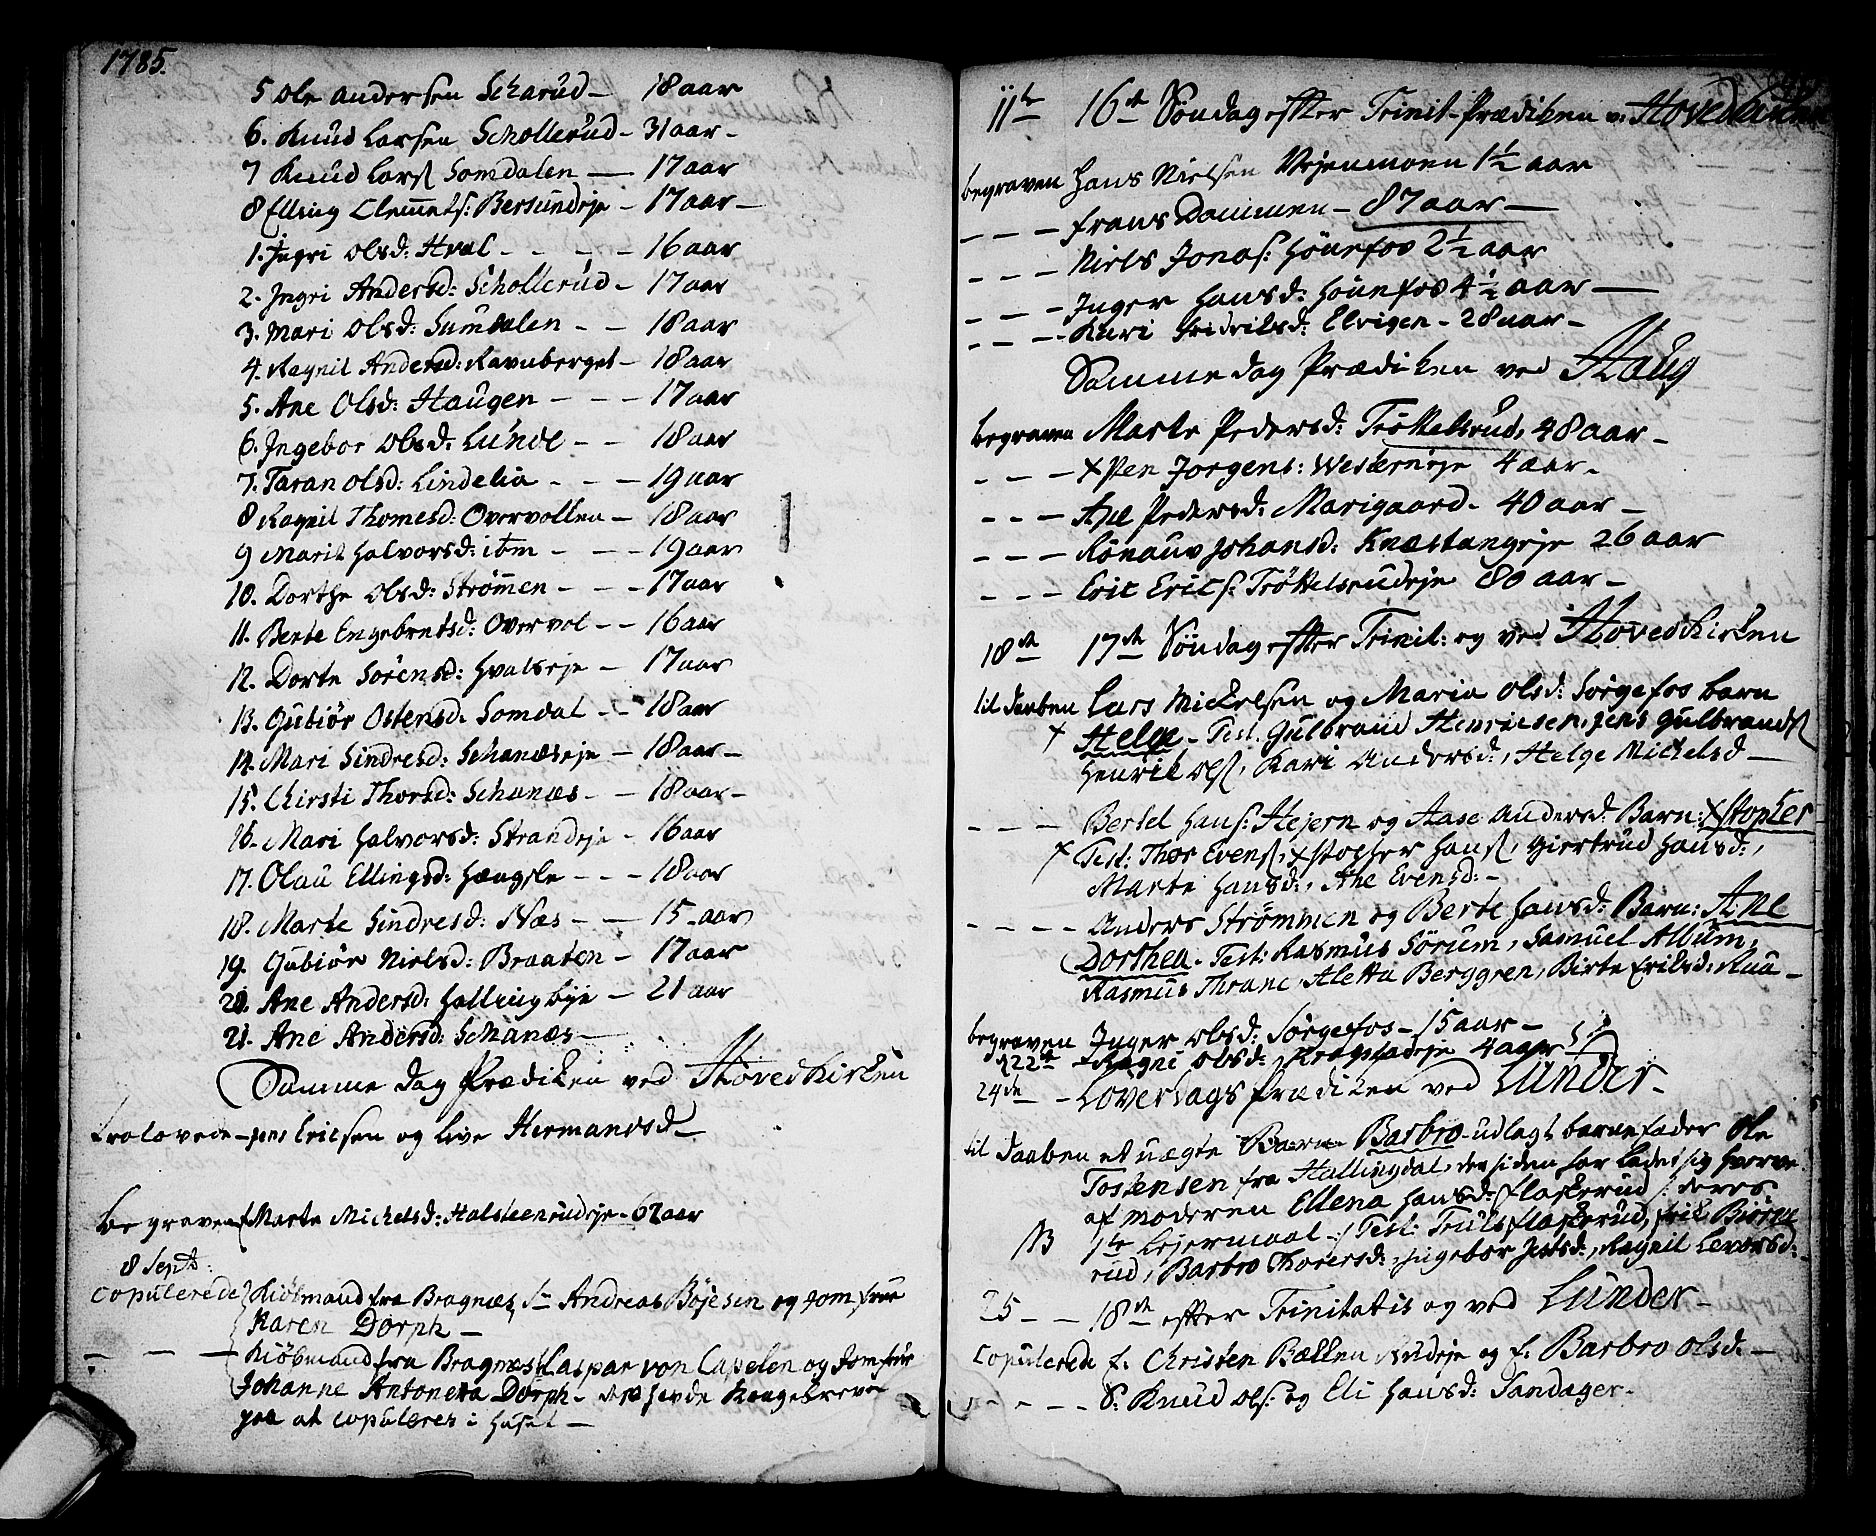 1785.
5 Ole Andersen Scharud – 18 aar
6. Knud Larsen Schollerud – 31 aar –
7 Knud Lars Somdalen — 17 aar
8 Elling Clemets: Bersundeje – 17 aar –
1. Jngri Olsd: Hval - - - - 16 aar
2. Jngri Andersd: Schollerud – 17 aar
3. Mari Olsd: Sumdalen – – 18 aar
4. Ragnil Andersd: Ravnberget – 18 aar
5. Ane Olsd: Haugen – – – 17 aar
6. Jngebor Olsd: Lunde – – 18 aar
7. Taran Olsd: Lindelia – – – 19 aar
8 Ragnil Thomesd: Overvollen – 18 aar
9 Marit Halvorsd: itm – – – 19 aar
10. Dorthe Olsd: Strømen – – – 17 aar
11. Berte Engebretsd: Overvol – – 16 aar
12. Dorte Sørensd: Hvalseje – 17 aar
13. Gubiør Ostensd. Somdal – – 18 aar
14. Mari Sindresd: Schanæseje – 18 aar –
15. Chirsti Thorsd: Schanæs – – 18 aar –
16. Mari Halvorsd: Strandeje – 16 aar
17. Olau Ellingsd: Hængsle – – – 18 aar
18. Marte Sindresd: Næs – – – 15 aar
19. Gubiør Nielsd: Braaten – 17 aar
20. Ane Andersd: Hallingbye – 21 aar
21. Ane Andersd: Schanæs –
Samme dag Prædiken ved Hovedkirken
trolovede – Jens Ericsen og Live Hermansd –
begraven Marte Michelsd: Halsteenrudeje – 62 aar
8 Sept:
Copulerede Kiøbmand fra Bragnæs, Sr Andreas Bøjesen og Jomfrue
Karen Dorph –
– – – Kiøbmand fra Bragnæs Caspar von Capelen og Jomfrue
Johanne Antonetta Dorph – havde Kongebreve
paa at copuleres i Huset –
11te 16de Søndag efter Trinit– Prædiken v. Hovedkirken
begraven Hans Nielsen Vejenmoen 1½ aar
– – – Frans Dammen – 87 aar —
– – – Niels Jonas: Hønefos 2½ aar
– – – Jnger Hansd: Hønefos 4½ aar —
– – – Kari Fridriksd: Elvigen – 28 aar –
Samme dag Prædiken ved Haug
begraven Marte Pedersd: Trøttelsrud, 48 aar –
– – – xPen Jorgens: Westerneje 4 aar –
– – – Ane Pedersd: Marigaard – 40 aar –
– – – Rønauv Johansd: Knæstangeje 26 aar
– – – Eric Erics: Trøttelsrudeje 80 aar –
18de 17de Søndag efter Trinit: og ved Hovedkirken
til Daaben Lars Mickelsen og Maria Olsd: Sørgefos barn
x Helge – Test. Gulbrand Henricsen, Jens Gulbrands
Henrik Ols, Kari Andersd:, Helge Mickelsd —
– – – Bertel Hans: Hejern og Aase Andersd: Barn: Xstopher
x Test: Thor Evens, xstopher Hans, Giertrud Hansd:,
Marte Hansd:, Ane Evensd: –
– – – – Anders Strømmen og Berte Hansd: Barn: Ane
Dorthea – Test: Rasmus Sørum, Samuel Album,
Rasmus Thrane, Aletta Berggren, Birte Eriksd: Ruu –
begraven Jnger Olsd: Sørgefos – 15 aar –
d 22de Magni Olsd: Kragstadeje 4 aar
24de – Løverdags Prædiken ved Lunder –
til Daaben et uægte Barn Barbro – udlagt barnefader Ole
Tostensen fra Hallingdal, der siden har ladet sig hverve
af moderen Ellena Hansd: Flaskerud /: deres
NB 1te Lejermaal :/ Test: Truls Flaskerud, Eric Biørge
rud, Barbro Thorersd:, Jngebor Jensd:, Ragnil Levorsd:
25 – – 18de efter Trinitatis og ved Lunder –
Copulerede f. Christen Bællen Rudeje og f. Barbro Olsd: –
– – – – S. Knud Ols: og Eli Hansd: Sandager –